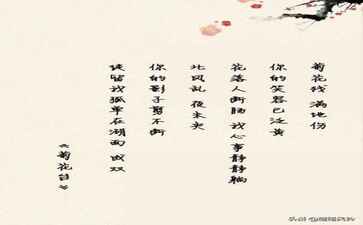 菊花残 满地伤
你的笑容已泛黄
花落人断肠 我心事静静躺
北风乱 夜未央
你的影子剪不断
徒留我孤单在湖面 成双
《菊花台》